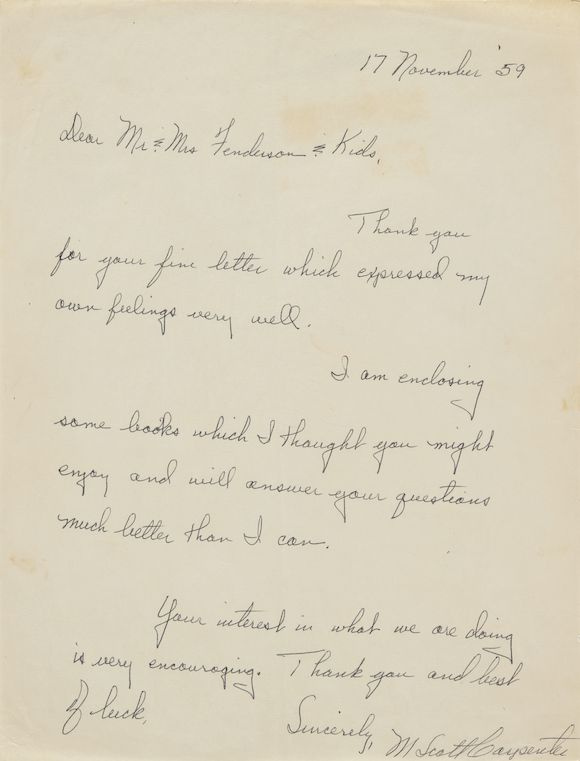 17 November '59
Dear Mr & Mrs Fenderson & Kids,
Thank you
for your fine letter which expressed my
own feelings very well.
I am enclosing
some books which I thought you might
enjoy and will answer your questions
much better than I can.
Your interest in what we are doing
is very encouraging. Thank you and best
of luck,
Sincerely,
M Scott Carpenter